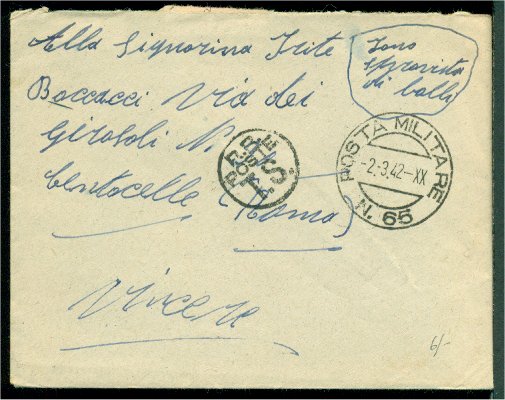 Alla Signorina Irite
Boccacci Via dei
Girasoli N.
Centocelle (Roma)
Vincere
sono
sprovista
di bolli
POSTA MILITARE
-2.-3.42-XX
N. 65
T.S.
6/-